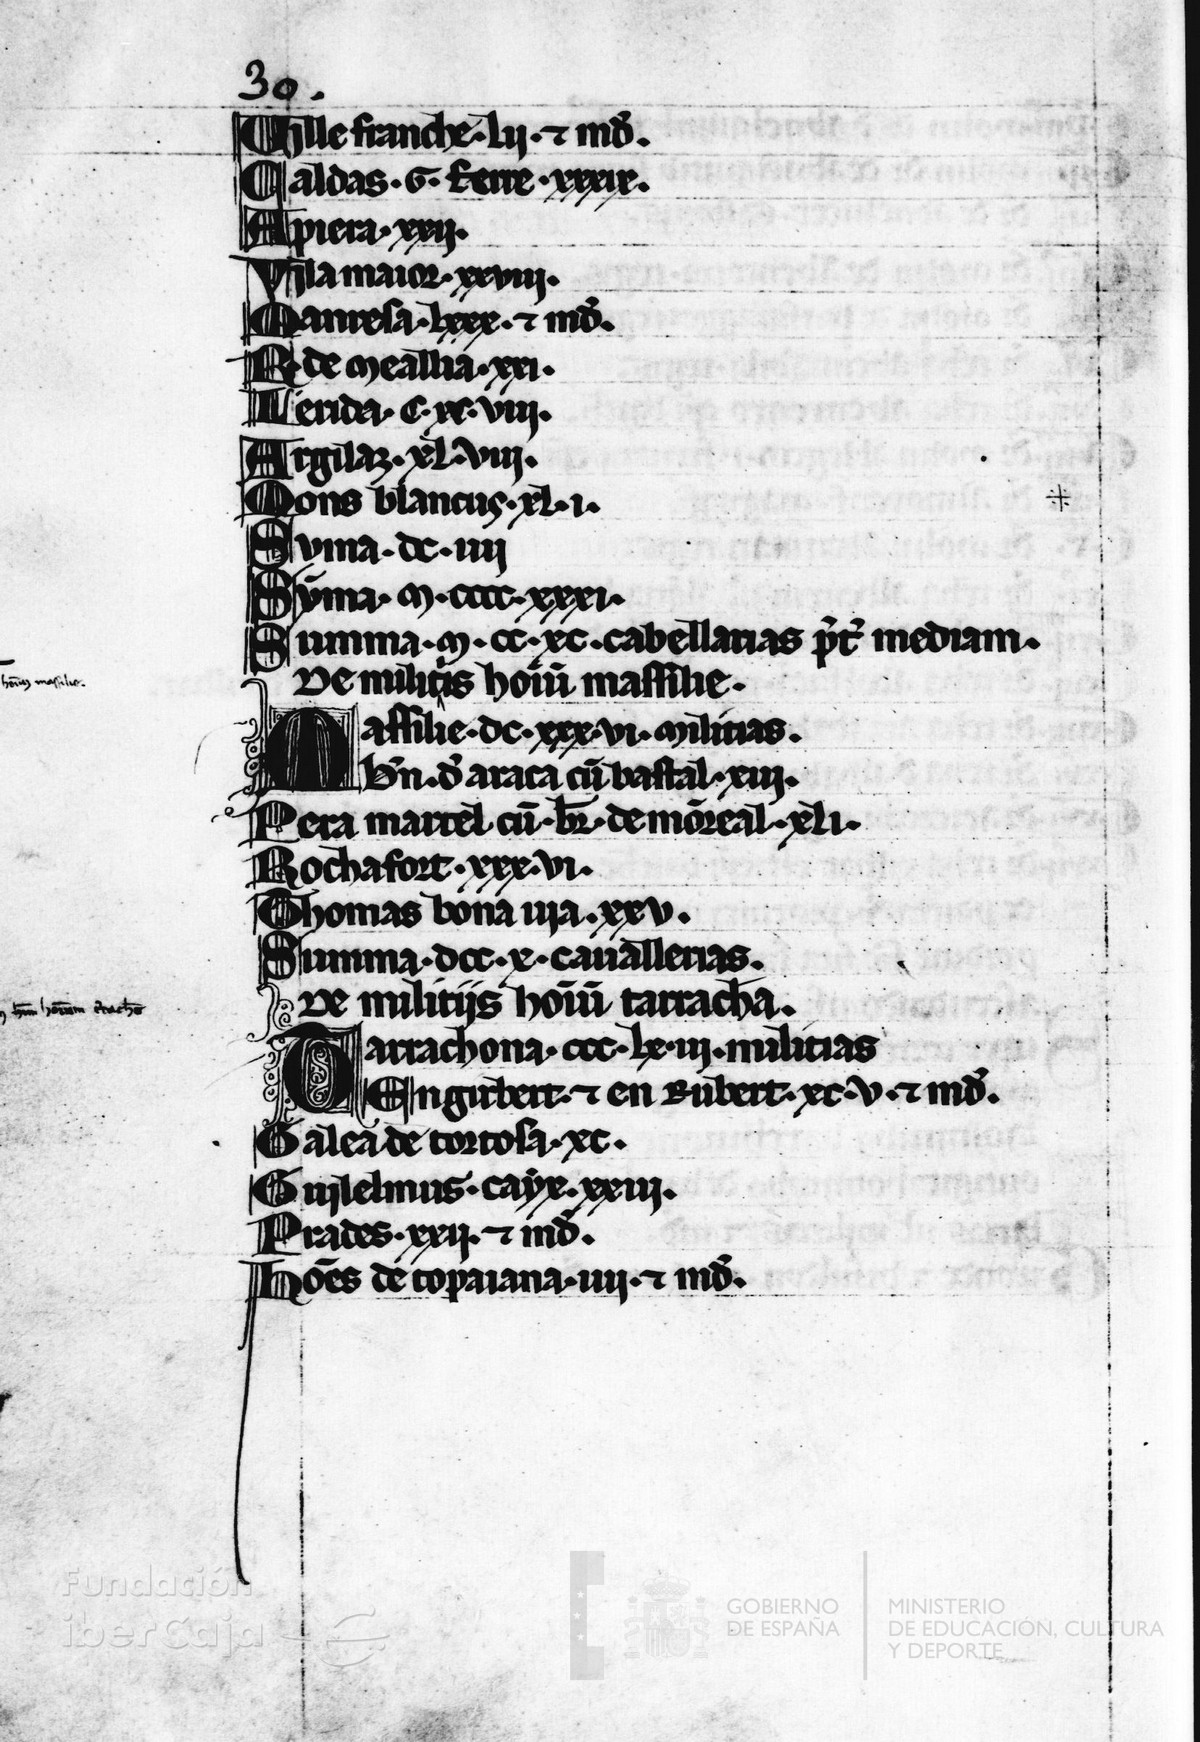 30.
Ville franche · lij · ⁊ md̃.
Caldas · G · ferre · xxxix.
Apiera · xxij.
Vila maior · xxviii.
Manresa · lxxx · ⁊ md̃.
R de Meallia · xxi.
Lerida · c · xc · viii.
Argilaz · xl · viii.
Mons blancus · xl · i.
Suma · dc · iiii
Suma · M · cccc · xxxi.
Summa · M · cc · xc · cabellarias p̃t̃ mediam.
De militiis hoīu massilie.
hoīuȝ massilie.
Massilie · dc · xxx · vi · militias.
bn̄ · d̃ araca cū bastal · xiii.
Pera martel cū · br̄ · de mōreal · xli.
Rochafort · xxx · vi.
Thomas bona uia · xxv.
Summa · dcc · x · cauallerias.
De militijs hoīu tarracha.
Tarrachona · ccc · lx · iii · militias
Engubert · ⁊ en Rubert · xc · v · ⁊ md̃.
Galea de tortosa · xc.
Guilelmus · cayx · xxiii.
Prades · xxij · ⁊ md̃.
hōes de copaiana · iiii · ⁊ md̃.
Fundación
iberCaja
GOBIERNO
DE ESPAÑA
MINISTERIO
DE EDUCACIÓN, CULTURA
Y DEPORTE